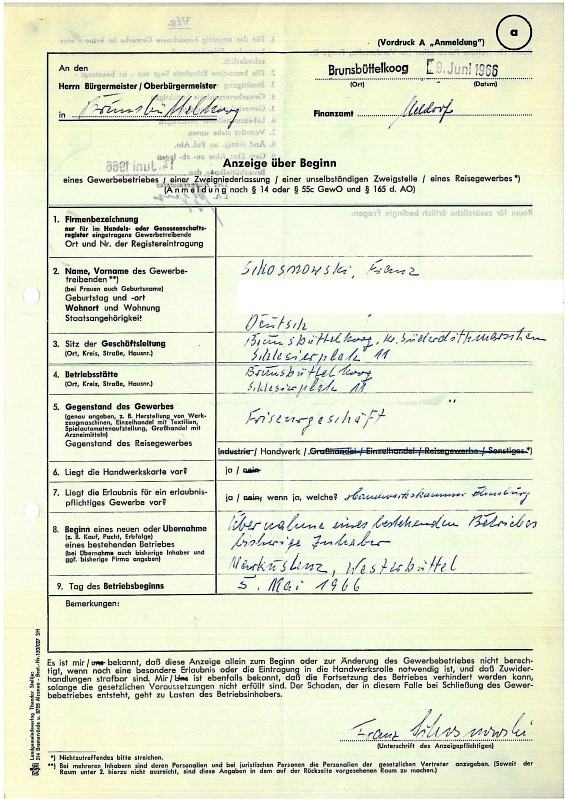 (Vordruck A „Anmeldung")
a
An den
Herrn Bürgermeister / Oberbürgermeister
in Brunsbüttelkoog
Brunsbüttelkoog 9. Juni 1966
(Ort) (Datum)
Finanzamt Meldorf
Anzeige über Beginn
eines Gewerbebetriebes / einer Zweigniederlassung / einer unselbständigen Zweigstelle / eines Reisegewerbes *)
(Anmeldung nach § 14 oder § 55c GewO und § 165 d. AO)
1. Firmenbezeichnung
nur für im Handels- oder Genossenschafts-
register eingetragene Gewerbetreibende
Ort und Nr. der Registereintragung
2. Name, Vorname des Gewerbe-
treibenden **)
(bei Frauen auch Geburtsname)
Geburtstag und -ort
Wohnort und Wohnung
Staatsangehörigkeit
Franz
Deutsch
3. Sitz der Geschäftsleitung
(Ort, Kreis, Straße, Hausnr.)
Brunsbüttelkoog, Kr. Süderdithmarschen
Schlesierplatz 11
4. Betriebsstätte
(Ort, Kreis, Straße, Hausnr.)
Brunsbüttelkoog
Schlesierplatz 11
5. Gegenstand des Gewerbes
(genau angeben, z. B. Herstellung von Werk-
zeugmaschinen, Einzelhandel mit Textilien,
Spielautomatenaufstellung, Großhandel mit
Arzneimitteln)
Gegenstand des Reisegewerbes
Friseurgeschäft
Industrie / Handwerk / Großhandel / Einzelhandel / Reisegewerbe / Sonstiges *)
6. Liegt die Handwerkskarte vor?
ja / nein
7. Liegt die Erlaubnis für ein erlaubnis-
pflichtiges Gewerbe vor?
ja / nein; wenn ja, welche? Handwerkskammer Flensburg
8. Beginn eines neuen oder Übernahme
(z. B. Kauf, Pacht, Erbfolge)
eines bestehenden Betriebes
(bei Übernahme auch bisherige Inhaber und
ggf. bisherige Firma angeben)
Übernahme eines bestehenden Betriebes
bisherige Inhaber
Westerbüttel
9. Tag des Betriebsbeginns
5. Mai 1966
Bemerkungen:
Es ist mir / uns bekannt, daß diese Anzeige allein zum Beginn oder zur Änderung des Gewerbebetriebes nicht berech-
tigt, wenn noch eine besondere Erlaubnis oder die Eintragung in die Handwerksrolle notwendig ist, und daß Zuwider-
handlungen strafbar sind. Mir / Uns ist ebenfalls bekannt, daß die Fortsetzung des Betriebes verhindert werden kann,
solange die gesetzlichen Voraussetzungen nicht erfüllt sind. Der Schaden, der in diesem Falle bei Schließung des Gewer-
bebetriebes entsteht, geht zu Lasten des Betriebsinhabers.
Franz
(Unterschrift des Anzeigepflichtigen)
*) Nichtzutreffendes bitte streichen.
**) Bei mehreren Inhabern sind deren Personalien und bei juristischen Personen die Personalien der gesetzlichen Vertreter anzugeben. (Soweit der
Raum unter 2. hierzu nicht ausreicht, sind diese Angaben in dem auf der Rückseite vorgesehenen Raum zu machen.)